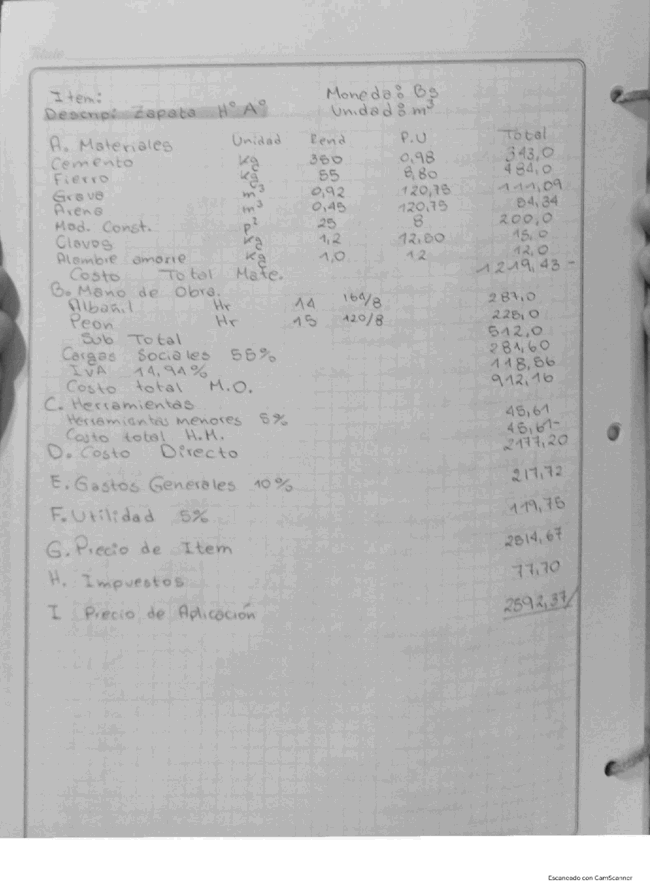 Item: Moneda: Bs
Descrip: Zapata H° A° Unidad: m³
A. Materiales Unidad Rend P.U Total
Cemento Kg 350 0,98 343,0
Fierro Kg 55 8,80 484,0
Grava m³ 0,92 120,75 111,09
Arena m³ 0,45 120,75 54,34
Mad. Const. p² 25 8 200,0
Clavos Kg 1,2 12,50 15,0
Alambre amarre Kg 1,0 12 12,0
Costo Total Mate. 1219,43-
B. Mano de Obra.
Albañil Hr 14 164/8 287,0
Peon Hr 15 120/8 225,0
Sub Total 512,0
Cargas Sociales 55% 281,60
IVA 14,94% 118,56
Costo total M.O. 912,16
C. Herramientas
Herramientas menores 5% 45,61
Costo total H.M. 45,61-
D. Costo Directo 2177,20
E. Gastos Generales 10% 217,72
F. Utilidad 5% 119,75
G. Precio de Item 2514,67
H. Impuestos 77,70
I Precio de Aplicación 2592,37/
Escaneado con CamScanner